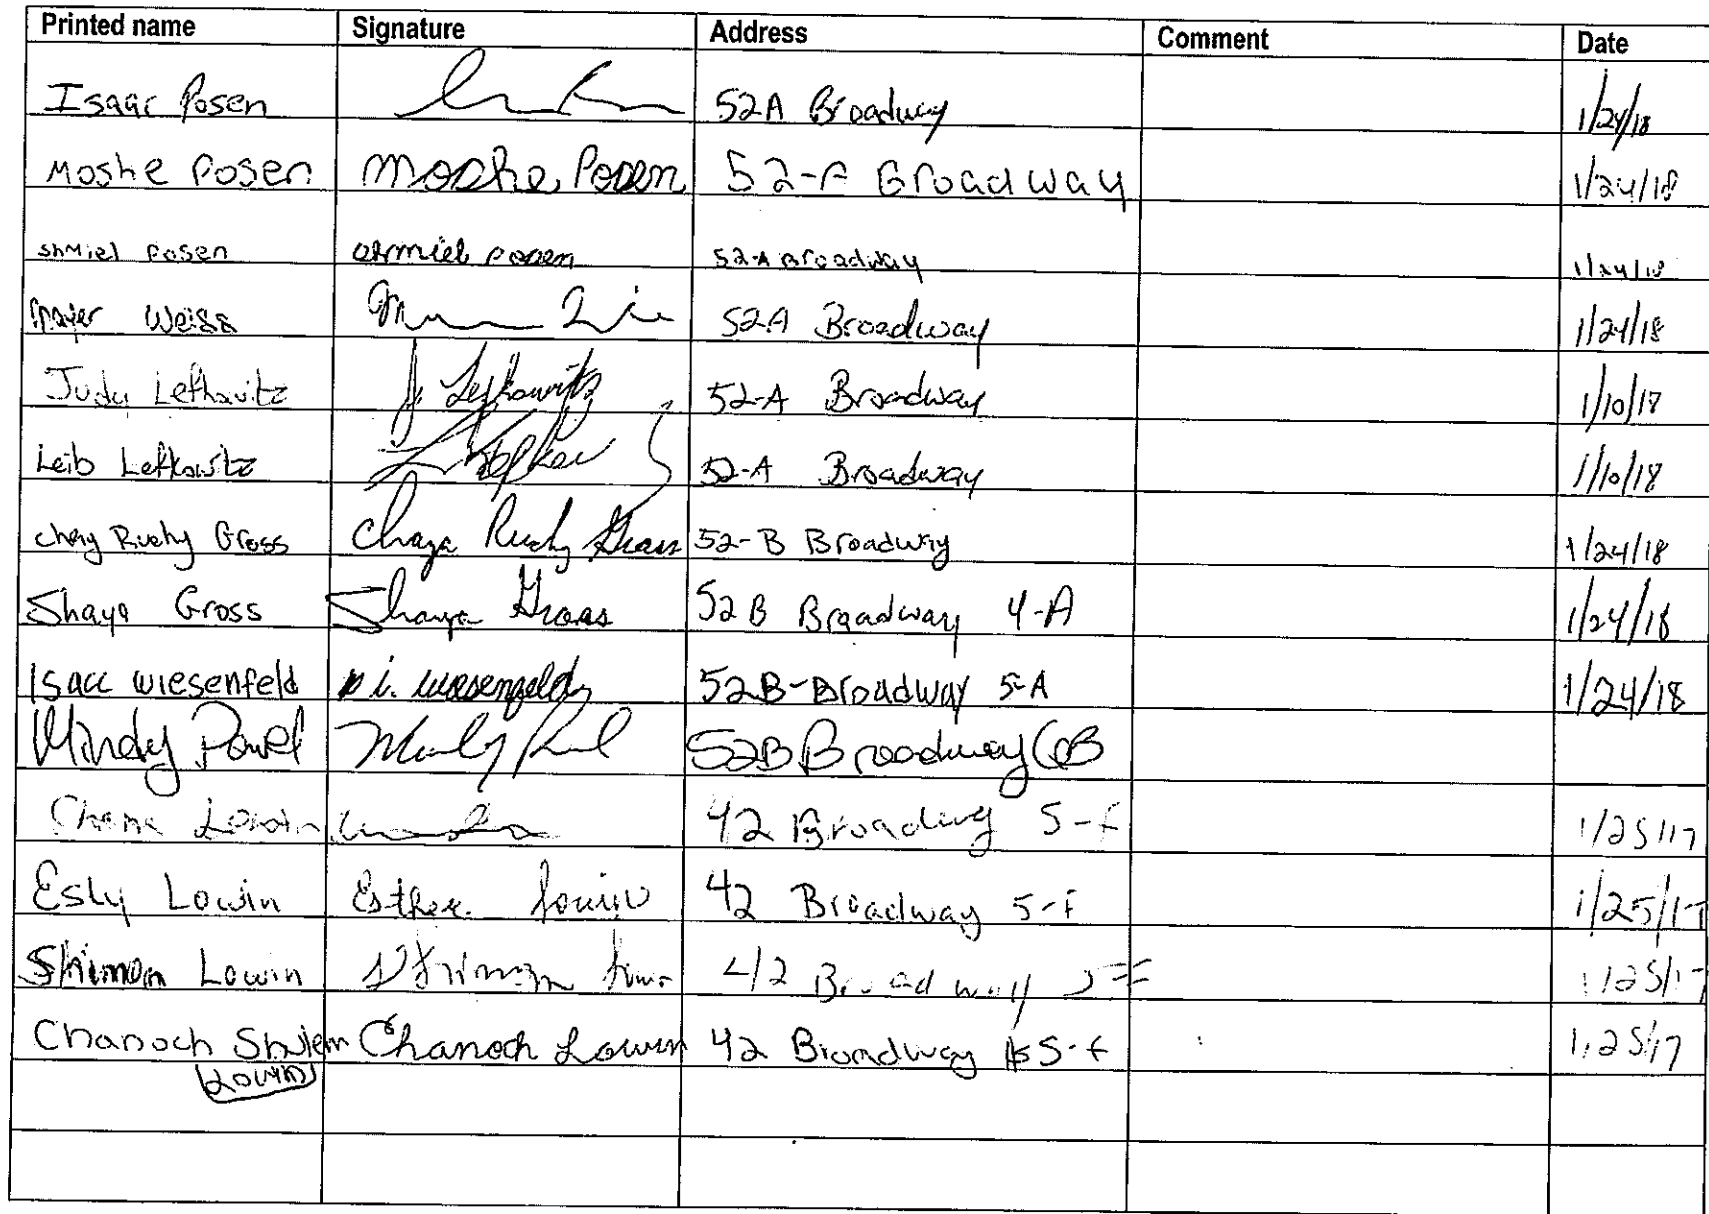 Printed name Signature Address Comment Date
Isaac Posen 52A Broadway 1/24/18
Moshe Posen Moshe Posen 52-A Broadway 1/24/18
Shmiel Posen Shmiel Posen 52-A Broadway 1/24/18
Mayer Weiss 52A Broadway 1/24/18
Judy Lefkowitz J. Lefkowitz 52-A Broadway 1/10/18
Leib Lefkowitz 52-A Broadway 1/10/18
Chay Ruchy Gross Chaya Ruchy Gross 52-B Broadway 1/24/18
Shaya Gross Shaya Gross 52B Broadway 4-A 1/24/18
Isacc Wiesenfeld i. wiesenfeld 52B-Broadway 5-A 1/24/18
Mindy Pavel 52B Broadway 6B
Lowin 42 Broadway 5-F 1/25/17
Esly Lowin Esther Lowin 42 Broadway 5-F 1/25/17
Shimon Lowin Shimon 42 Broadway 5F 1/25/17
Chanoch Chanoch Lowin 42 Broadway 5-F 1/25/17
Lowin